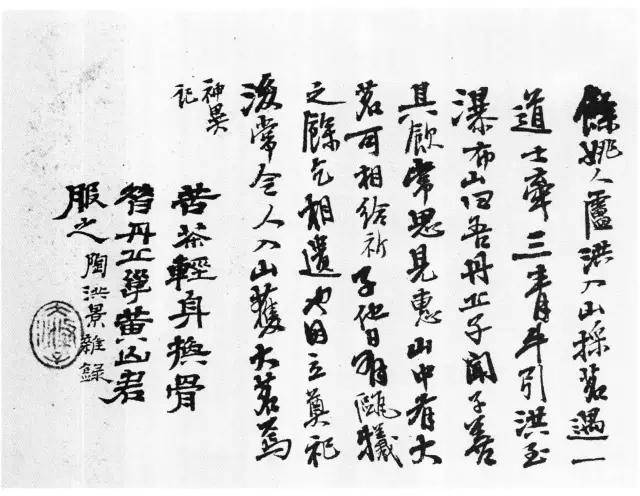 餘姚人盧洪入山採茗遇一
道士牽三青牛引洪至
瀑布山曰吾丹丘子聞子善
具飲常思見惠山中有大
茗可相給祈子他日有甌犧
之餘乞相遺也因立奠祀
後常令人入山獲大茗焉
神異
記
苦茶輕身換骨
昔丹丘黃山君
服之陶洪景雜錄